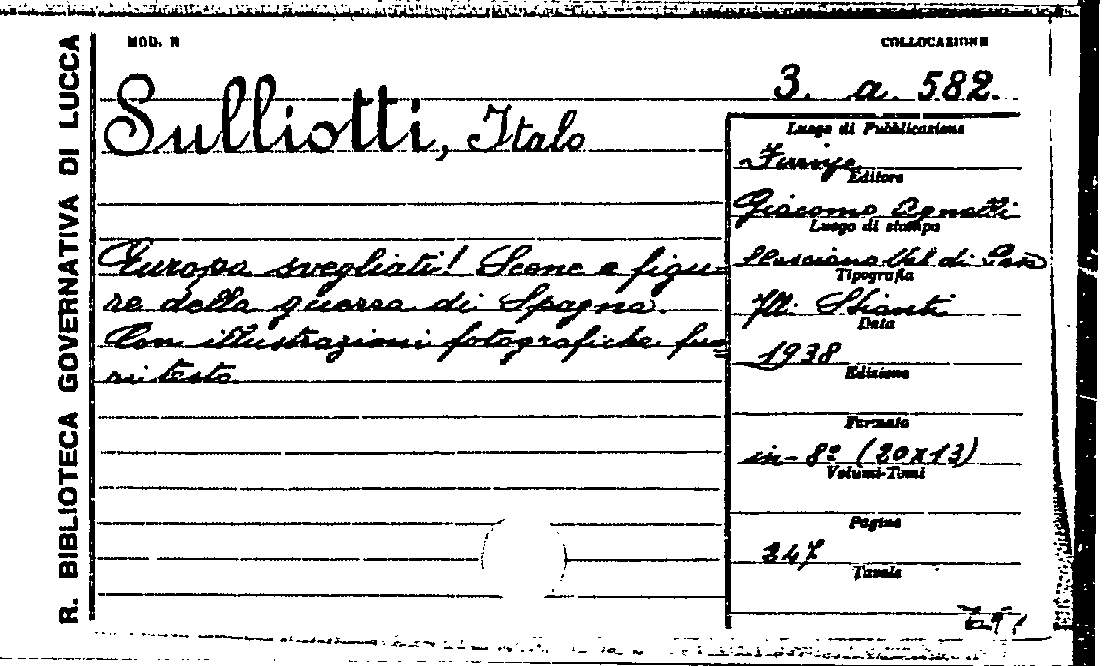 R. BIBLIOTECA GOVERNATIVA DI LUCCA
MOD. N
COLLOCAZIONE
3. a. 582.
Sulliotti, Italo
Europa svegliati! Scene e figu-
re della guerra di Spagna.
Con illustrazioni fotografiche fuo-
ri testo.
Luogo di Pubblicazione
Firenze
Editore
Giacomo Agnelli
Luogo di stampa
Val di
Tipografia
Stianti
Data
1938
Edizione
Formato
in-8º (20x13)
Volumi-Tomi
Pagine
247
Tavole